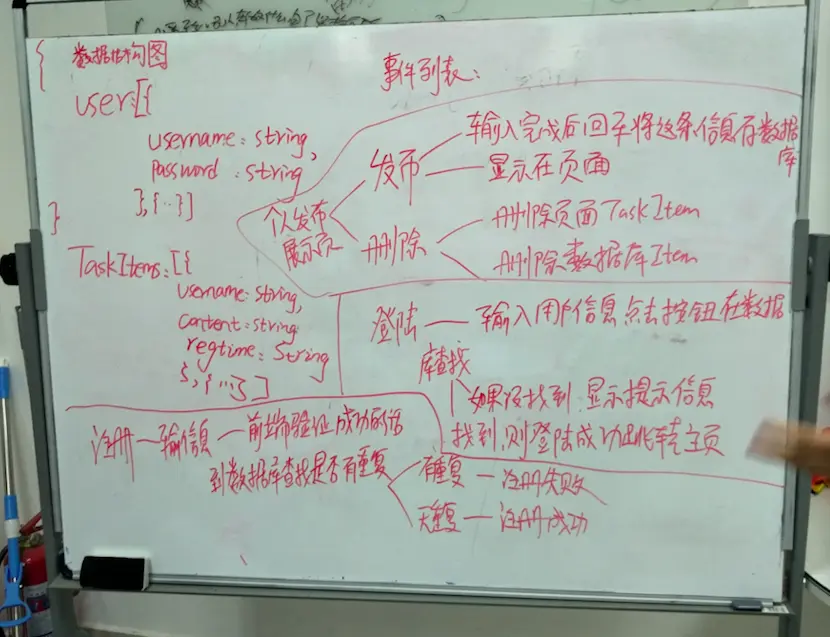 { 数据结构图
user:[{
username: string,
password: string
},{...}]
}
TaskItems:[{
username: string,
content: string
regtime: String
},{...}]
事件列表:
个人发布
展示页
发布
输入完成后回车将这条信息存数据
库
显示在页面
删除
删除页面TaskItem
删除数据库Item
登陆 — 输入用户信息点击按钮在数据
库查找
如果没找到,显示提示信息
找到,则登陆成功 主页
注册 — 输信息 — 前端验证成功的话
到数据库查找是否有重复
有重复 — 注册失败
无重复 — 注册成功